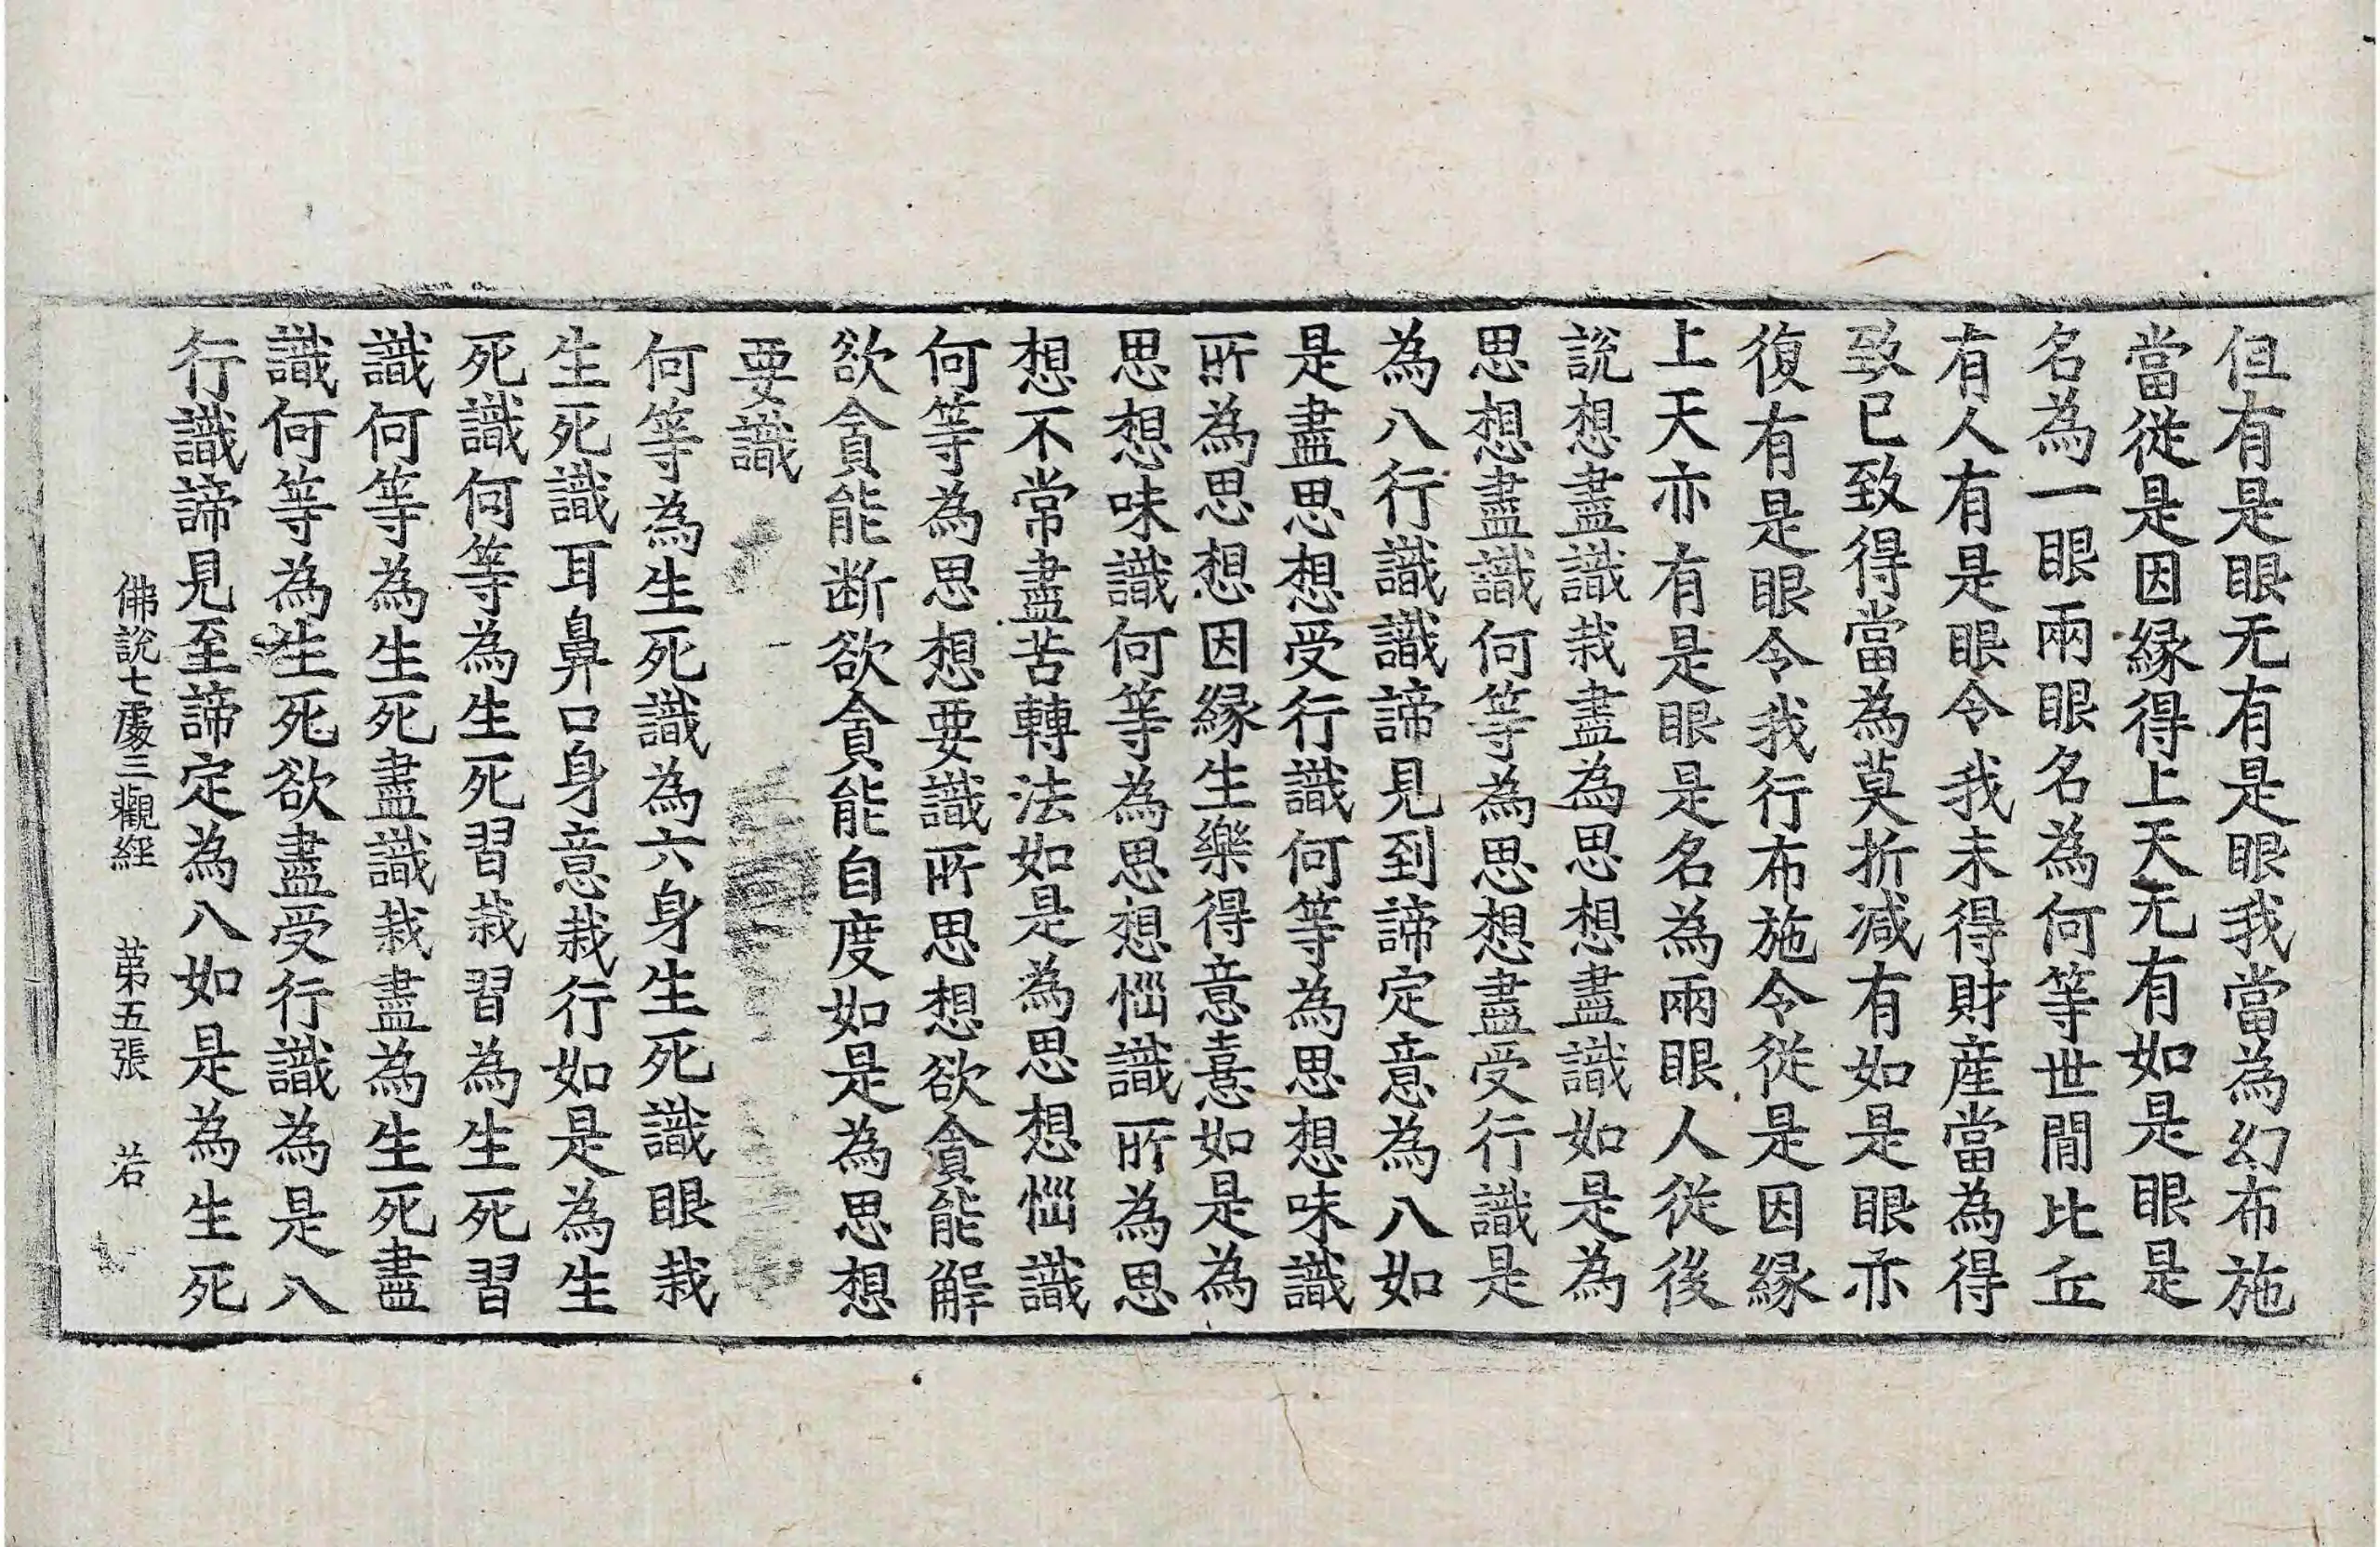 但有是眼无有是眼我當爲幻布施
當從是因縁得上天无有如是眼是
名爲一眼兩眼名爲何等世閒比丘
有人有是眼令我未得財産當爲得
致已致得當爲莫折减有如是眼亦
復有是眼令我行布施令從是因縁
上天亦有是眼是名爲兩眼人從後
說想盡識栽盡爲思想盡識如是爲
思想盡識何等爲思想盡受行識是
爲八行識識諦見到諦定意爲八如
是盡思想受行識何等爲思想味識
所爲思想因縁生樂得意憙如是爲
思想味識何等爲思想惱識所爲思
想不常盡苦轉法如是爲思想惱識
何等爲思想要識所思想欲貪能解
欲貪能断欲貪能自度如是爲思想
要識
何等爲生死識爲六身生死識眼栽
生死識耳鼻口身意栽行如是爲生
死識何等爲生死習栽習爲生死習
識何等爲生死盡識栽盡爲生死盡
識何等爲生死欲盡受行識爲是八
行識諦見至諦定爲八如是爲生死
佛說七處三觀經 苐五張 若